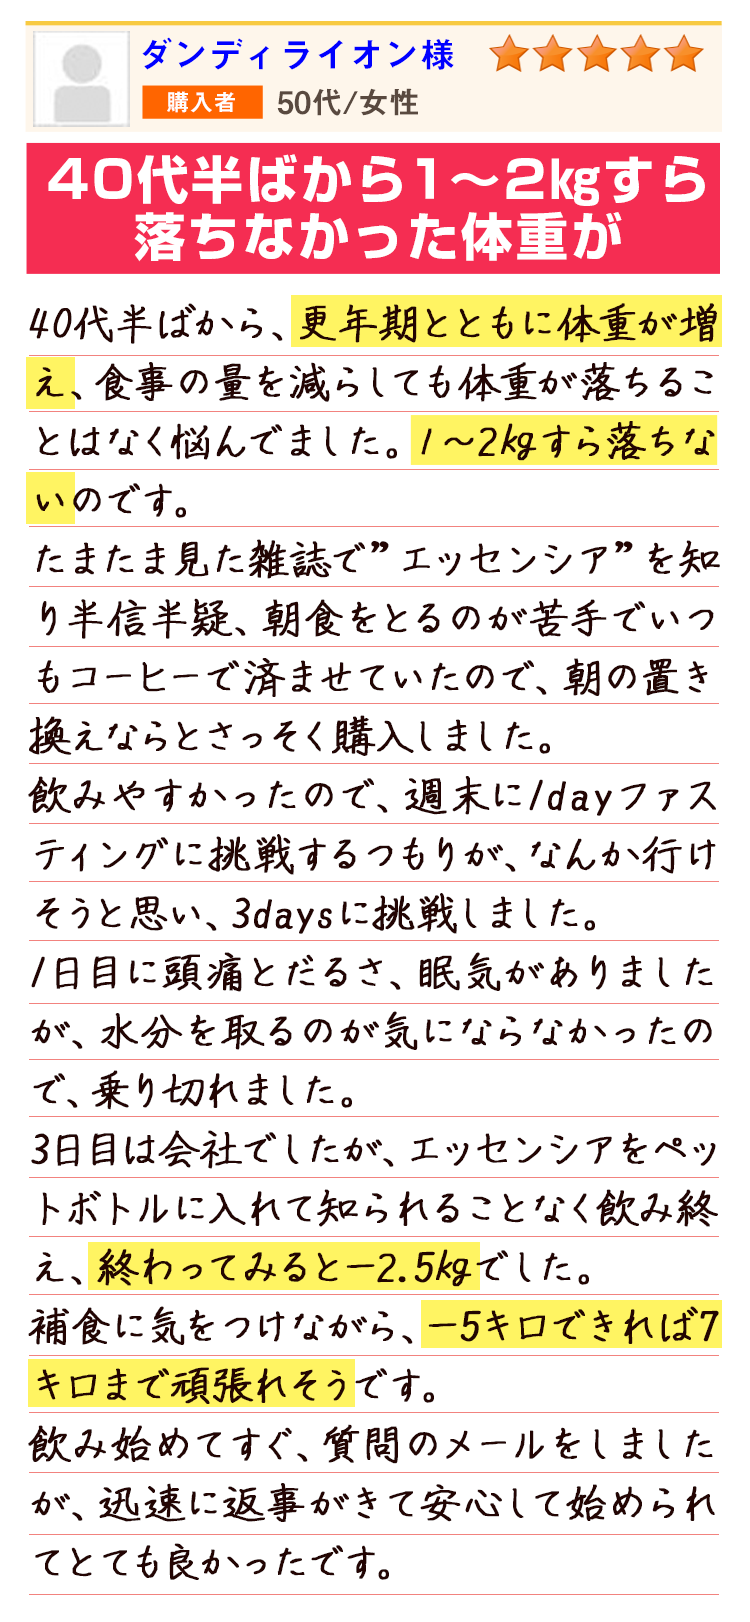 ダンディライオン様
購入者 50代/女性
40代半ばから1～2㎏すら
落ちなかった体重が
40代半ばから、更年期とともに体重が増
え、食事の量を減らしても体重が落ちるこ
とはなく悩んでました。1～2kgすら落ちな
いのです。
たまたま見た雑誌で”エッセンシア”を知
り半信半疑、朝食をとるのが苦手でいつ
もコーヒーで済ませていたので、朝の置き
換えならとさっそく購入しました。
飲みやすかったので、週末に1dayファス
ティングに挑戦するつもりが、なんか行け
そうと思い、3daysに挑戦しました。
1日目に頭痛とだるさ、眠気がありました
が、水分を取るのが気にならなかったの
で、乗り切れました。
3日目は会社でしたが、エッセンシアをペッ
トボトルに入れて知られることなく飲み終
え、終わってみると－2.5kgでした。
補食に気をつけながら、－5キロできれば7
キロまで頑張れそうです。
飲み始めてすぐ、質問のメールをしました
が、迅速に返事がきて安心して始められ
てとても良かったです。